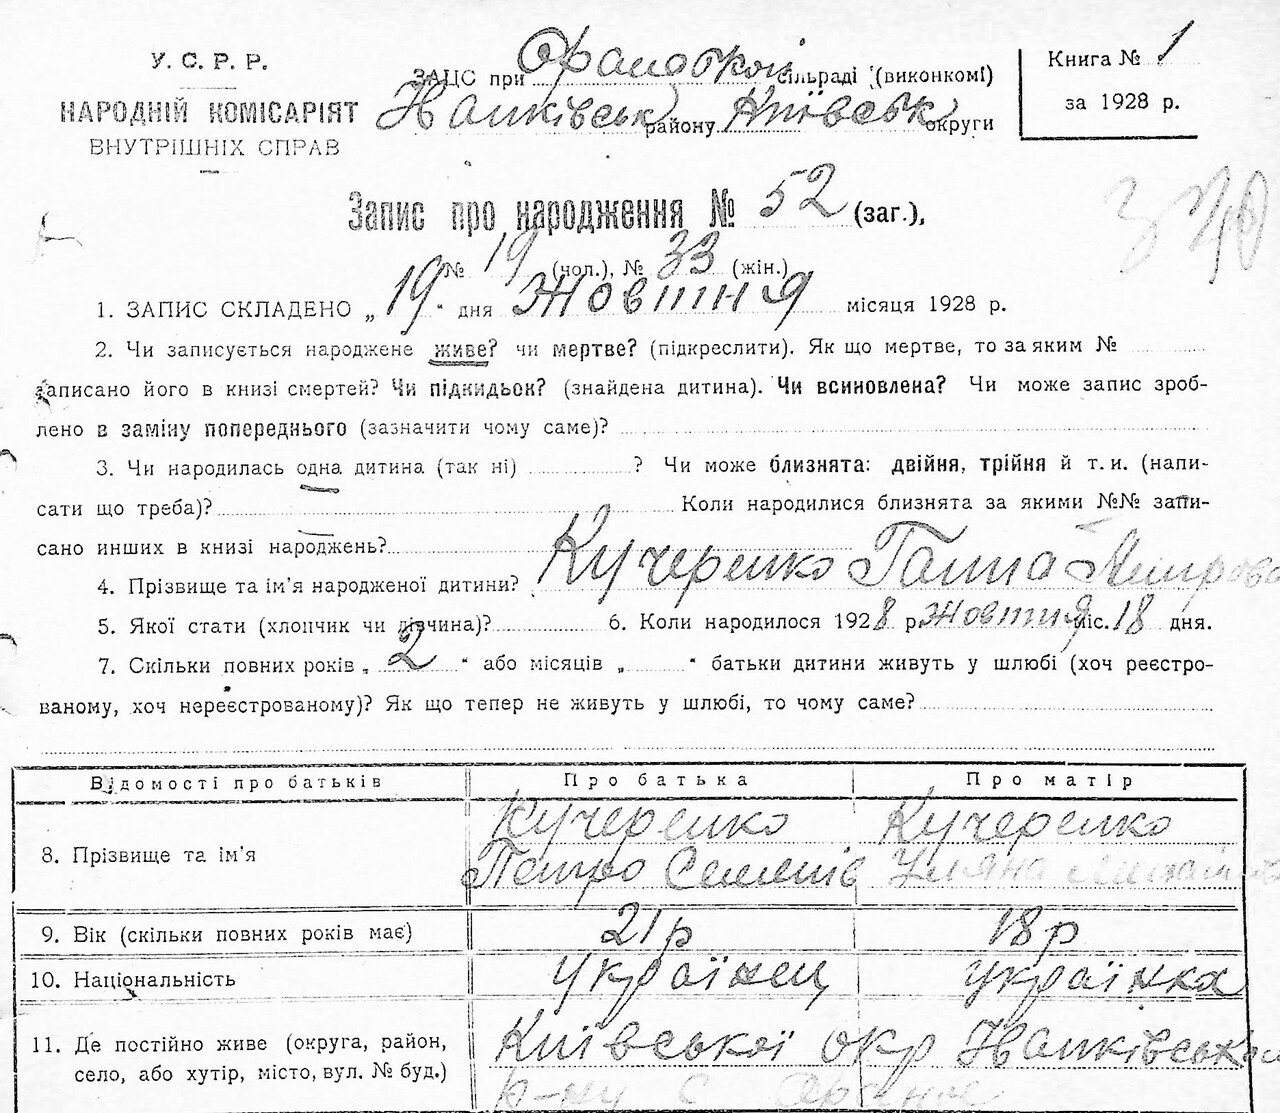 У. С. Р. Р.
НАРОДНІЙ КОМІСАРІЯТ
ВНУТРІШНІХ СПРАВ
ЗАЦС при Ораноській сільраді (виконкомі)
району Київськ округи
Книга № 1
за 1928 р.
Запис про народження № 52 (заг.),
№ 19 (чол.), № 33 (жін.)
340
1. ЗАПИС СКЛАДЕНО „ 19 “ дня Жовтня місяця 1928 р.
2. Чи записується народжене живе? чи мертве? (підкреслити). Як що мертве, то за яким №
записано його в книзі смертей? Чи підкидьок? (знайдена дитина). Чи всиновлена? Чи може запис зроб-
лено в заміну попереднього (зазначити чому саме)?
3. Чи народилась одна дитина (так ні) ? Чи може близнята: двійня, трійня й т. и. (напи-
сати що треба)? Коли народилися близнята за якими №№ запи-
сано инших в книзі народжень?
4. Прізвище та ім’я народженої дитини? Кучеренко Ганна Петрова
5. Якої стати (хлопчик чи дівчина)? 6. Коли народилося 1928 р Жовтня міс. 18 дня.
7. Скільки повних років „ 2 “ або місяців „ “ батьки дитини живуть у шлюбі (хоч реєстро-
ваному, хоч нереєстрованому)? Як що тепер не живуть у шлюбі, то чому саме?
Відомості про батьків Про батька Про матір
8. Прізвище та ім’я
Кучеренко
Петро Семенів
Кучеренко
Уляна
9. Вік (скільки повних років має) 21р 18р
10. Національність українец українка
11. Де постійно живе (округа, район,
село, або хутір, місто, вул. № буд.)
Київської окр
р-ну с Оране